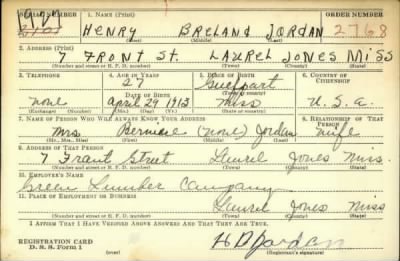 SERIAL NUMBER 1. NAME (Print) ORDER NUMBER
HENRY BRELAND JORDAN 2768
(First) (Middle) (Last)
2. ADDRESS (Print)
7 FRONT ST. LAUREL JONES MISS
(Number and street or R. F. D. number) (Town) (County) (State)
3. TELEPHONE 4. AGE IN YEARS 5. PLACE OF BIRTH 6. COUNTRY OF CITIZENSHIP
27 Gulfport
DATE OF BIRTH (Town or county)
none April 29 1913 Miss U.S.A.
(Exchange) (Number) (Mo.) (Day) (Yr.) (State or country)
7. NAME OF PERSON WHO WILL ALWAYS KNOW YOUR ADDRESS 8. RELATIONSHIP OF THAT PERSON
Mrs (none) Jordan wife
(Mr., Mrs., Miss) (First) (Middle) (Last)
9. ADDRESS OF THAT PERSON
7 Front Street Laurel Jones Miss.
(Number and street or R. F. D. number) (Town) (County) (State)
10. EMPLOYER'S NAME
Green Lumber Company
11. PLACE OF EMPLOYMENT OR BUSINESS
Laurel Jones Miss
(Number and street or R. F. D. number) (Town) (County) (State)
I AFFIRM THAT I HAVE VERIFIED ABOVE ANSWERS AND THAT THEY ARE TRUE.
REGISTRATION CARD
D. S. S. Form 1
H B Jordan
(Registrant's signature)